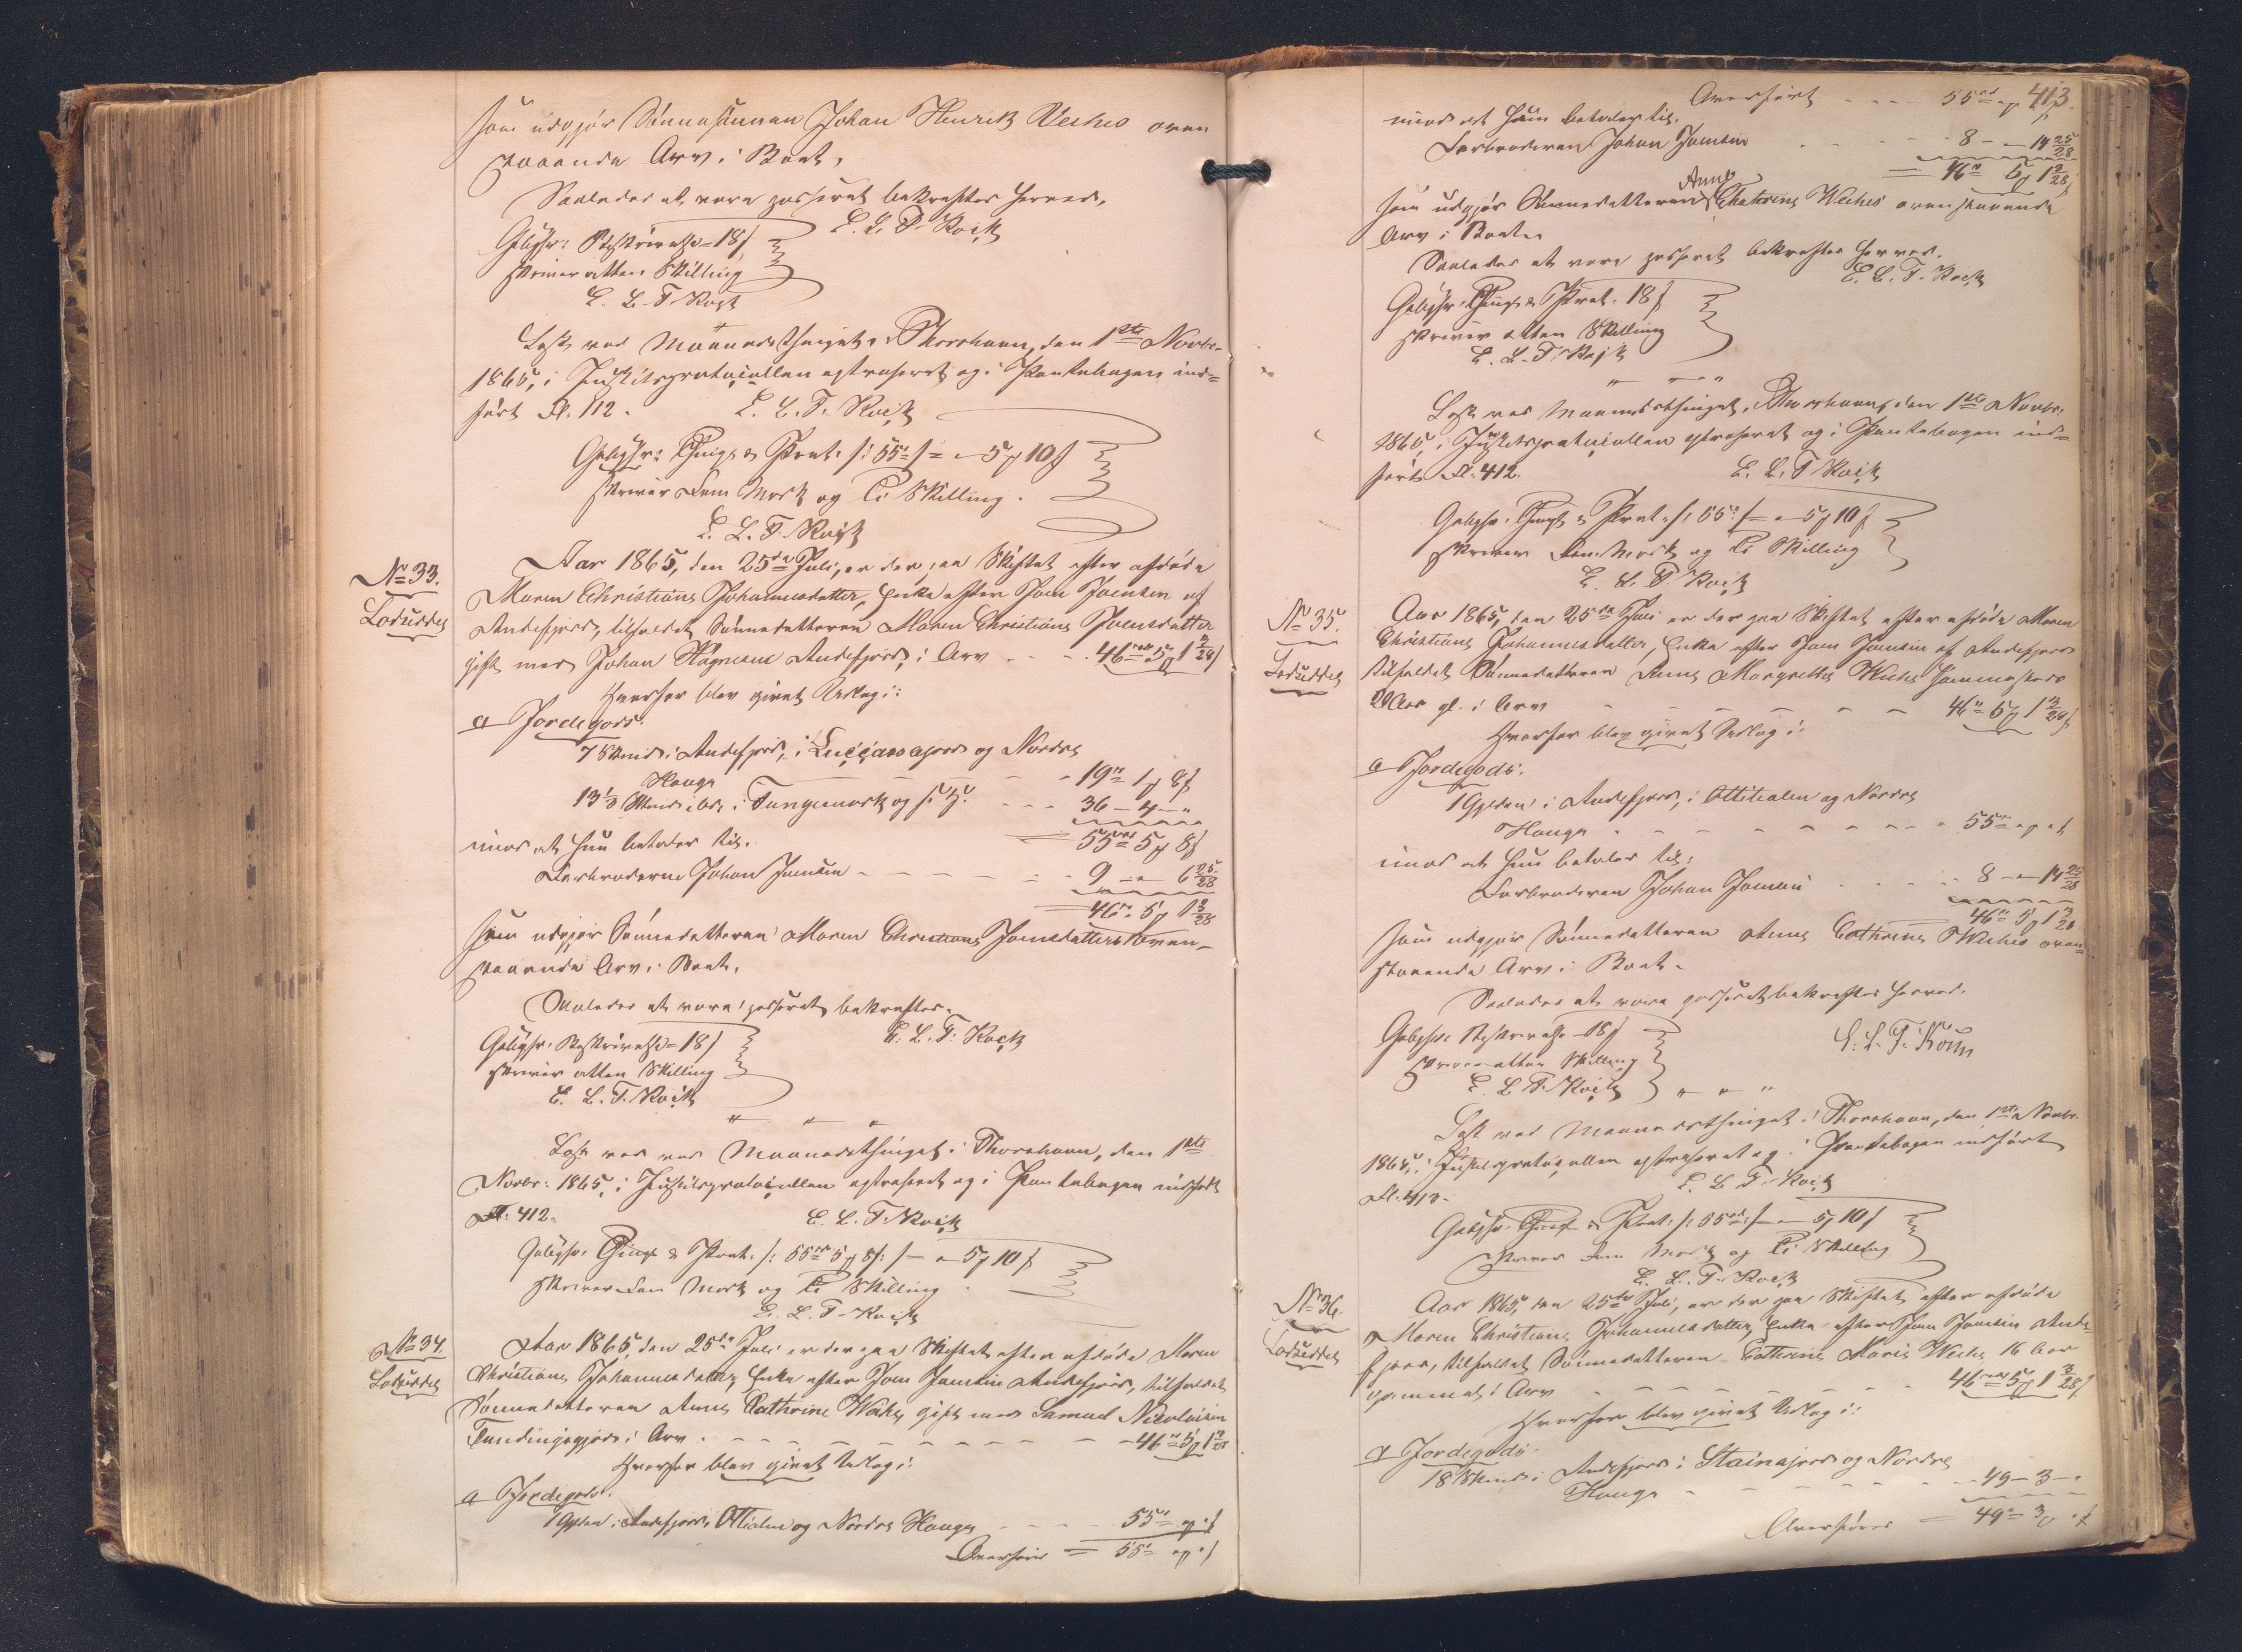 som udgjør Sønnesønnen Johan Henrik Weihes oven
staaende Arv i Boet.
Saaledes at være passeret bekræftes herved.
Gebyhr: Beskrivelse = 18 s
E. L. T. Kock
skriver atten Skilling
E. L. T. Kock
Læst ved Maanedsthinget i Thorshavn, den 1ste Novbr.
1865, i Justitsprotocollen extraheret og i Pantebogen ind=
ført Fl. 412.
E. L. T. Kock
Gebyhr: Thingl. & Prot. /: 55 rd :/ = - 5 10 s
skriver Fem Mark og Ti Skilling.
E. L. T. Kock
No 33.
Lodseddel
Aar 1865, den 25de Juli, er der paa Skiftet efter afdøde
Maren Christiane Johannesdatter, Enke efter Joen Joensen af
Andefjord, tilfaldet Sønnedatteren Maren Christiane Joensdatter
gift med Johan Høgnesen Andefjord, i Arv - - - 46 rd 5 1 3/28 s
Hvorfor blev givet Udlag i:
a Jordegods:
7 Skind i Andefjord, i og Nordre
Hauge - - - 19 rd 1 8 s
13 1/3 Skind ibd. i og - - - 36 - 4 - "
= 55 rd 5 8 s
imod at hun betaler til:
Farbroderen Johan Joensen - - - 9 - " - 6 25/28
= 46 rd 5 1 3/28
som udgjør Sønnedatteren Maren Christiane Joensdatters oven-
staaende Arv i Boet.
Saaledes at være passeret bekræftes.
Gebyhr: Beskrivelse = 18 s
E. L. T. Kock
skriver atten Skilling
E. L. T. Kock
" " "
Læst ved Maanedsthinget i Thorshavn, den 1ste
Novbr: 1865, i Justitsprotocollen extraheret og i Pantebogen indført
Fl. 412.
E. L. T. Kock
Gebyhr: Thingl & Prot. /: 55 rd 5 8 s :/ - 5 10 s
skriver Fem Mark og Ti Skilling
E. L. T. Kock
No 34.
Lodseddel
Aar 1865, den 25de Juli er der paa Skiftet efter afdøde Maren
Christiane Johannesdatter, Enke efter Joen Joensen Andefjord, tilfaldet
Sønnedatteren Anne Cathrine Weihe, gift med Samuel Nicolaisen
Fundingsfjord i Arv - - - 46 rd 5 1 3/28
Hvorfor blev givet Udlag i:
a Jordegods.
1 Gylden i Andefjord, i og Nordre Hauge - - - 55 rd " "
Overføres = 55 rd " "
413.
Overført - - - 55 rd
imod at hun betaler til:
Farbroderen Johan Joensen - - - 8 - " - 14 25/28
= 46 rd 5 1 3/28
som udgjør Sønnedatteren Anne Chatrine Weihes ovenstaaende
Arv i Boet.
Saaledes at være passeret bekræftes herved.
E. L. T. Kock
Gebyhr: Thingl & Prot. 18 s
skriver atten Skilling
E. L. T. Kock
" " "
Læst ved Maanedsthinget i Thorshavn, den 1ste Novbr.
1865, i Justitsprotocollen extraheret og i Pantebogen ind=
ført Fl. 412.
E. L. T. Kock
Gebyhr: Thingl & Prot. /: 55 rd :/ - 5 10 s
skriver Fem Mark og Ti Skilling
E. L. T. Kock
No 35.
Lodseddel
Aar 1865, den 25de Juli er der paa Skiftet efter afdøde Maren
Christiane Johannesdatter, Enke efter Joen Joensen af Andefjord
tilfaldet Sønnedatteren Anne Margrethe Weihe
Aar gl. i Arv - - - 46 rd 5 1 3/28 s
Hvorfor blev givet Udlag i:
a Jordegods:
1 Gylden i Andefjord, i og Nordre
Hauge - - - 55 rd " "
imod at hun betaler til:
Farbroderen Johan Joensen - - - 8 - " - 14 25/28
46 rd 5 1 3/28
som udgjør Sønnedatteren Anne Cathrine Weihes oven=
staaende Arv i Boet.
Saaledes at være passeret bekræftes herved.
Gebyhr: Beskrivelse - 18 s
E. L. T. Kock
skriver atten Skilling
E. L. T. Kock
" " "
Læst ved Maanedsthinget i Thorshavn, den 1ste Novbr.
1865, i Justitsprotocollen extraheret og i Pantebogen indført
Fl. 413.
E. L. T. Kock
Gebyhr. Thingl & Prot. /: 55 rd :/ - 5 10 s
skriver Fem Mark og Ti Skilling
E. L. T. Kock
No 36.
Lodseddel
Aar 1865, den 25de Juli, er der paa Skiftet efter afdøde
Maren Christiane Johannesdatter, Enke efter Joen Joensen Ande=
fjord, tilfaldet Sønnedatteren Cathrine Marie Weihe 16 Aar
gammel i Arv - - - 46 rd 5 1 3/28 s
Hvorfor blev givet Udlag i:
a Jordegods
18 Skind i Andefjord i og Nordre
Hauge - - - 49 - 3 - "
Overføres = 49 rd 3 "